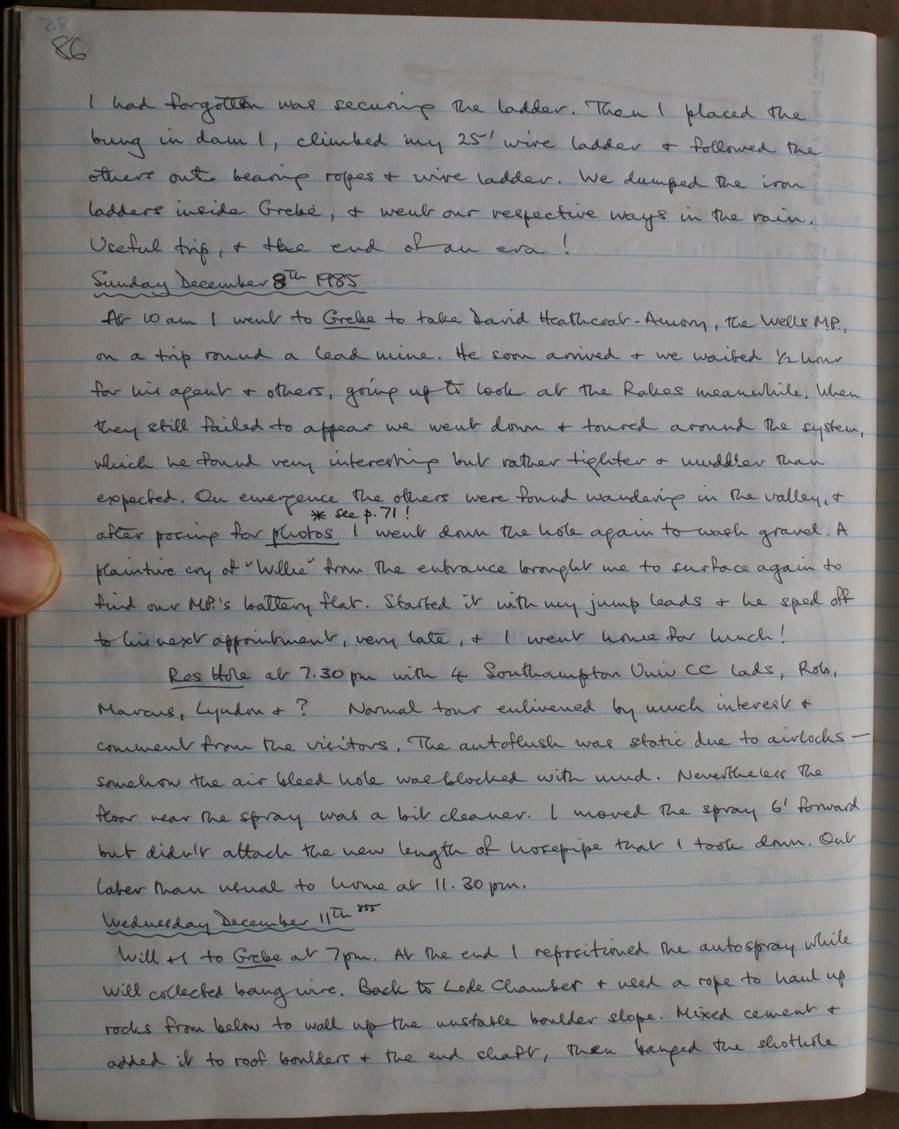 86
I had forgotten was securing the ladder. Then I placed the
bung in dam 1, climbed my 25' wire ladder + followed the
others out bearing ropes + wire ladder. We dumped the iron
ladders inside Grebe, + went our respective ways in the rain.
Useful trip, + the end of an era!
Sunday December 8th 1985
At 10 am I went to Grebe to take David Heathcoat-Amory, the Wells M.P.,
on a trip round a lead mine. He soon arrived + we waited ½ hour
for his agent + others, going up to look at the Rakes meanwhile. When
they still failed to appear we went down + toured around the system,
which he found very interesting but rather tighter + muddier than
expected. On emergence the others were found wandering in the valley, +
* see p. 71!
after posing for photos I went down the hole again to wash gravel. A
plaintive cry of "Willie" from the entrance brought me to surface again to
find our M.P.'s battery flat. Started it with my jump leads + he sped off
to his next appointment, very late, + I went home for lunch!
Res Hole at 7.30 pm with 4 Southampton Univ CC lads, Rob,
Marcus, Lyndon + ? Normal tour enlivened by much interest +
comment from the visitors. The autoflush was static due to airlocks —
somehow the air bleed hole was blocked with mud. Nevertheless the
floor near the spray was a bit cleaner. I moved the spray 6' forward
but didn't attach the new length of hosepipe that I took down. Out
later than usual to home at 11.30 pm.
Wednesday December 11th
Will + I to Grebe at 7pm. At the end I repositioned the autospray while
Will collected bang wire. Back to Lode Chamber + used a rope to haul up
rocks from below to wall up the unstable boulder slope. Mixed cement +
added it to roof boulders + the end shaft, then banged the shothole